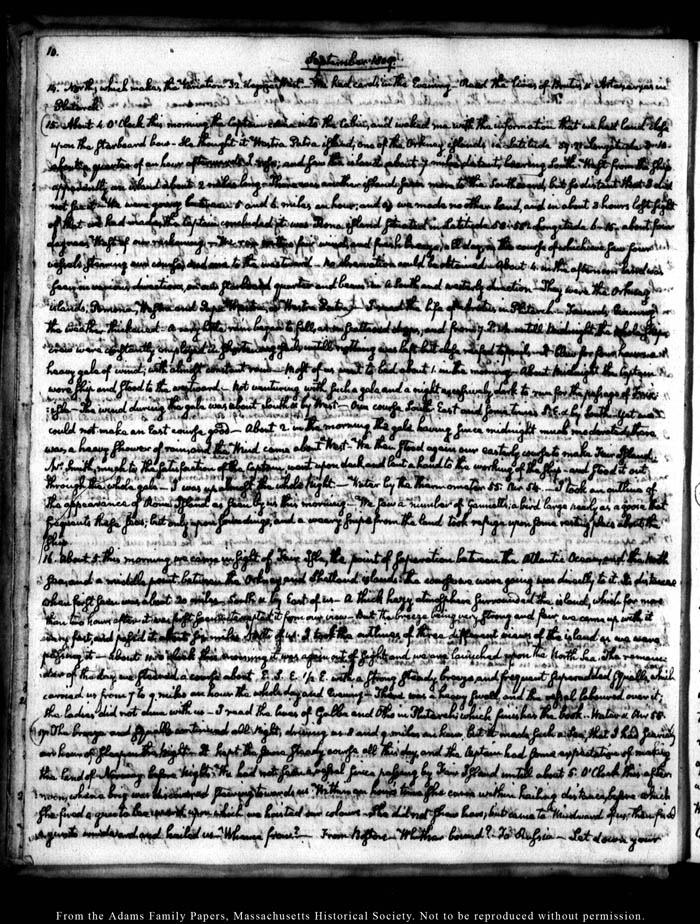 10.
September 1809.
14. North, which makes the Variation 32 degrees West. We had cards in the Evening - Read the Lives of Brutus & Artaxerxes in
Plutarch.
15. About 4 O'Clock this morning the Captain came into the Cabin, and waked me with the information that we had land close
upon the Starboard bow - He thought it Westra Patra island, one of the Orkney islands in latitude
about a quarter of an hour afterwards I rose, and saw the island about 7 miles distant, bearing South West from the ship
apparently an island about 2 miles long. There was another island seen more to the Southward, but so distant that I did
not see it. We were going between 5 and 6 miles an hour, and as we made no other land, and in about 3 hours lost sight
of that we had in the Captain concluded it was Rona island situated in latitude Longitude about four
degrees West of our reckoning. We had fair wind and fresh breeze, all day, in the course of which we saw four
vessels steering our course, and one to the westward. No observation could be obtained. About 4 in the afternoon land was
seen in various directions, on our Starboard quarter and beam in a South and westerly direction. They were the Orkney
islands, Pomona, Westra and Papa Westra, or Westra Patra. I read the life of Aratus in Plutarch. Towards Evening
the weather thickened. A small rain began to fall, soon gathered strength, and from 7 P.M. until Midnight the whole ship's
crew were constantly employed in shortening sail, untill nothing was left but close reefed topsails. Blew for four hours a
heavy gale of wind, with almost constant rain. Most of us went to bed about 1 in the morning. About Midnight the Captain
wore ship and stood to the westward. Not venturing with such a gale and a night so dark to run for the passage of Fair
Isle - The wind during the gale was about South by West. Our course South East and sometimes S.E. by South. Yet we
could not make an East course good. About 2 in the morning the gale having since midnight much moderated there
was a heavy shower of rain and the Wind came about West. We then stood again our easterly course to make Fair Island.
Mr. Smith, much to the satisfaction of the Captain, went upon deck and lent a hand to the working of the ship - and stood it out
through the whole gale. I was up almost the whole Night. Water by the Thermometer 55. Air 54. I took an outline of
the appearance of Rona Island as seen by us this morning. We saw a number of Gannetts; a bird large nearly as a goose that
frequents these seas; but only upon soundings, and a weary from the land took refuge upon some resting place about the
Ship.
16. About 5 this morning we came in sight of Fair Isle, the point of separation between the Atlantic Ocean, and the North
Sea, and a middle point between the Orkney and Shetland islands: the course we were going was directly to it. Its distance
when first seen was about 20 miles. South by East of us. A thick hazy atmosphere surrounded the island, which for more
than two hours after it was first seen intercepted it from our view. But the breeze being very strong and fair we came up with it
very fast, and passed it about six miles South of us. I took the outlines of three different views of the island as we were
passing it. About ten o'clock this morning it was again out of sight and we are launched upon the North Sea. The remain-
der of the day we steered a course about E. S. E. 1/2 E. with a strong steady breeze and frequent squalls, which
carried us from 7 to 9 miles an hour the whole day and Evening. There was a heavy swell and the vessel laboured over it,
the ladies did not dine with us. I read the lives of Galba and Otho in Plutarch; which finishes the book. Water & Air 55.
17. The breeze and squalls continued all Night, driving us 8 and 9 miles an hour, but it made such a sea, that I had scarcely
an hour of sleep in the Night. It kept the same steady course all this day, and the Captain had some expectation of making
the land of Norway before Night. We had not seen a vessel since passing by Fair Island until about 5 O'Clock this after-
noon, when a brig was discovered steering towards us. Within an hours time she came within hailing distance, before which
she fired a gun to leeward upon which we hoisted our colours. She did not show hers, but came to Windward of us, then fired
a gun to windward and hailed us. Whence from? From Boston. Whither bound? To Russia. Let down your
From the Adams Family Papers, Massachusetts Historical Society. Not to be reproduced without permission.